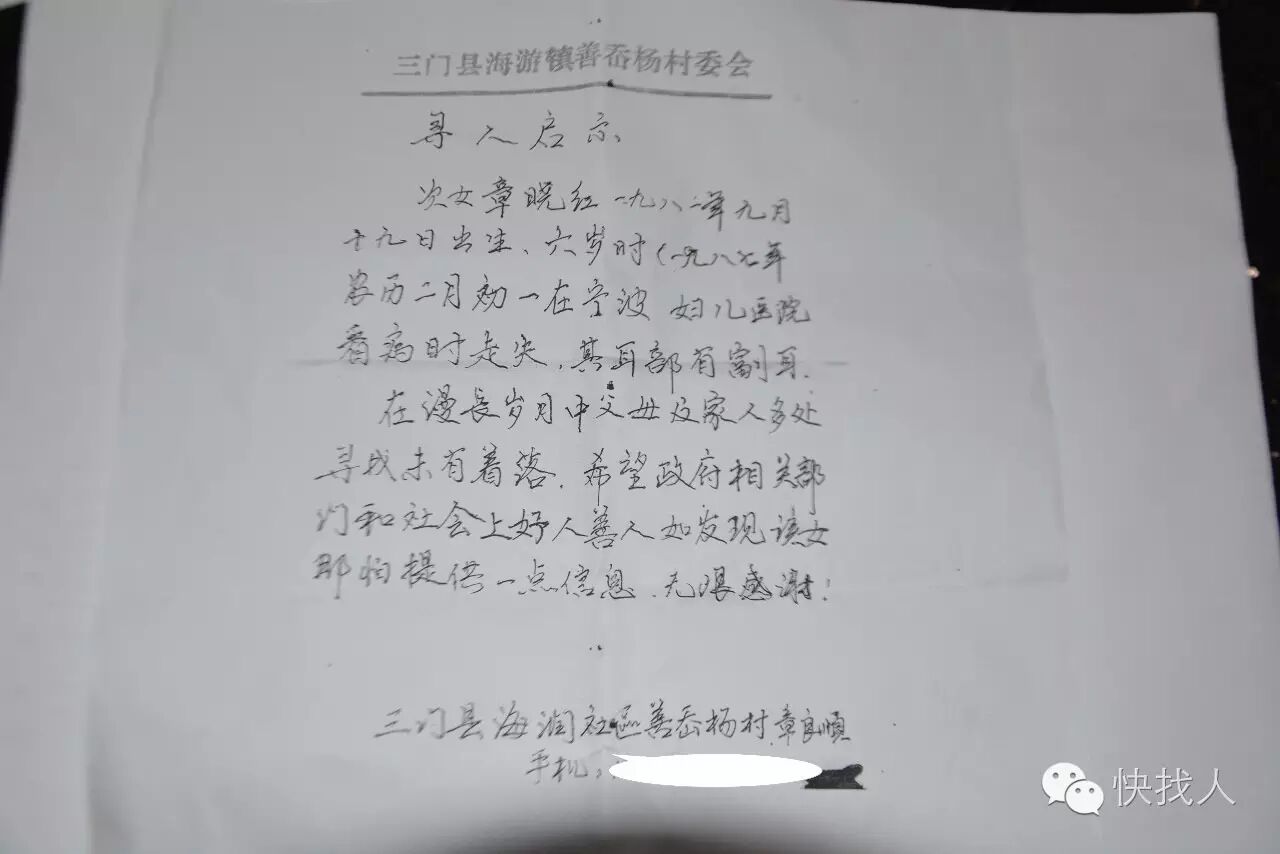 三门县海游镇善岙杨村委会
寻人启示
次女章晓红一九八二年九月
十九日出生、六岁时(一九八七年
农历二月初一在宁波妇儿医院
看病时走失,其耳部有副耳.
在漫長岁月中父母及家人多处
寻找未有着落.希望政府相关部
门和社会上好人善人如发现该女
那怕提供一点信息.无限感谢!
三门县海润社区善岙杨村.章良顺
手机:
快找人